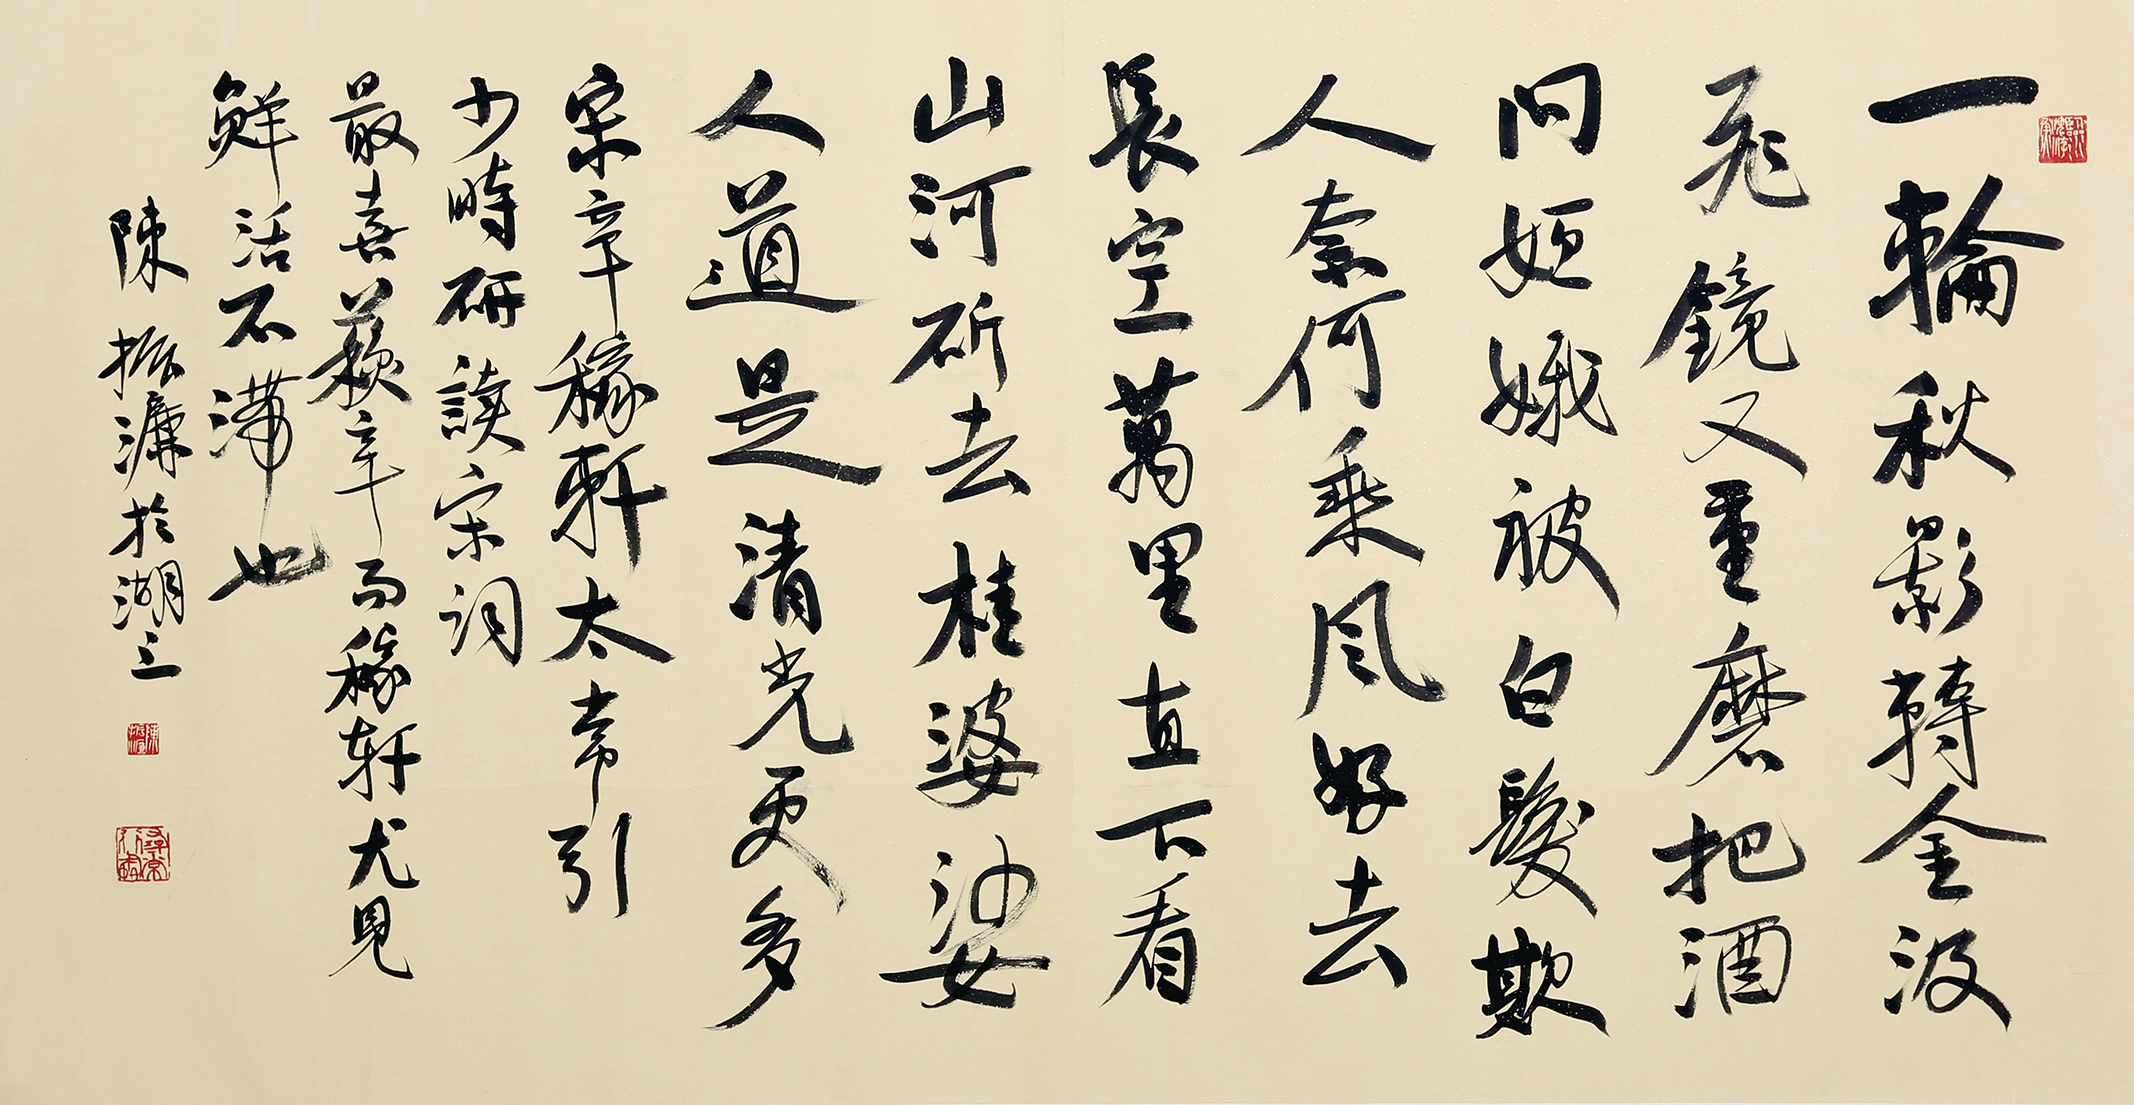 一輪秋影轉金波
飛鏡又重磨把酒
問姮娥被白髮欺
人奈何乘風好去
長空萬里直下看
山河斫去桂婆娑
人道是清光更多
宋辛稼軒太常引
少時研讀宋詞
最喜蘇辛而稼軒尤見
鮮活不滯也
陳振濂於湖上